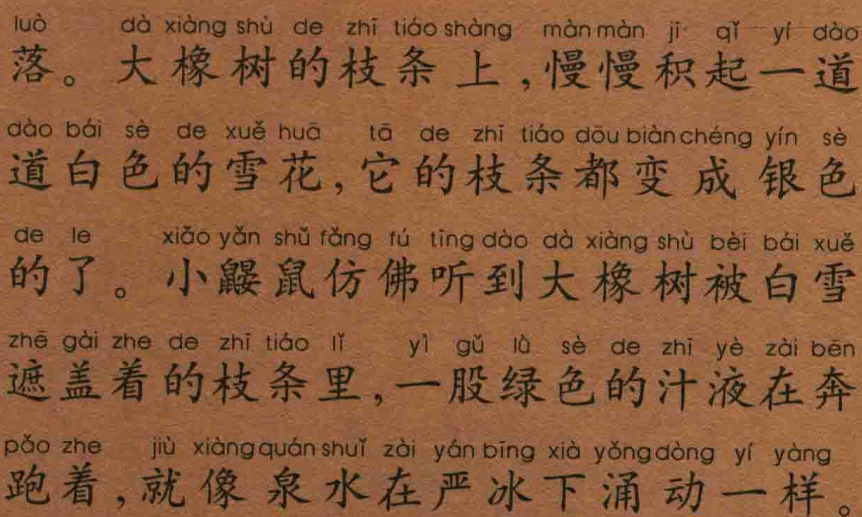 luò dà xiàng shù de zhī tiáo shàng màn màn jī qǐ yí dào
落。大橡树的枝条上,慢慢积起一道
dào bái sè de xuě huā tā de zhī tiáo dōu biàn chéng yín sè
道白色的雪花,它的枝条都变成银色
de le xiǎo yǎn shǔ fǎng fú tīng dào dà xiàng shù bèi bái xuě
的了。小鼹鼠仿佛听到大橡树被白雪
zhē gài zhe de zhī tiáo lǐ yì gǔ lǜ sè de zhī yè zài bēn
遮盖着的枝条里,一股绿色的汁液在奔
pǎo zhe jiù xiàng quán shuǐ zài yán bīng xià yǒng dòng yí yàng
跑着,就像泉水在严冰下涌动一样。